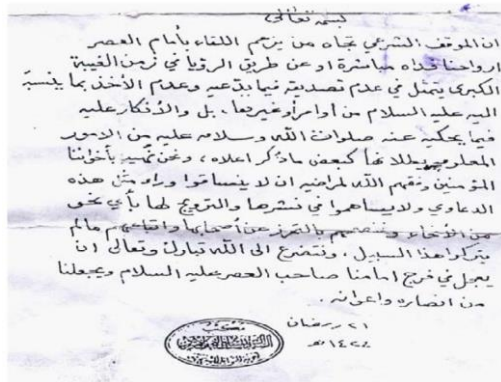 بسمه تعالى
ان الموقف الشرعي تجاه من يزعم اللقاء بأمام العصر
ارواحنا فداه مباشرة او عن طريق الرؤيا في زمن الغيبة
الكبرى يتمثل في عدم تصديقه فيما يدعيه وعدم الأخذ بما ينسبه
اليه عليه السلام من أوامر أو غيرها، بل والأنكار عليه
فيما يحكيه عنه صلوات الله وسلامه عليه من الامور
المعلوم بطلانها كبعض ماذكر اعلاه، ونحن نهيب بأخواننا
المؤمنين وفقهم الله لمراضيه ان لا ينساقوا وراء مثل هذه
الدعاوي ولا يساهموا في نشرها والترويج لها بأي نحو
من الأنحاء وننصحهم بالتحرز عن أصحابها واتباعهم مالم
يتركوا هذا السبيل، ونتضرع الى الله تبارك وتعالى ان
يعجل في فرج امامنا صاحب العصر عليه السلام ويجعلنا
من انصاره واعوانه.
٢١ رمضان
١٤٢٤هـ
مكتب